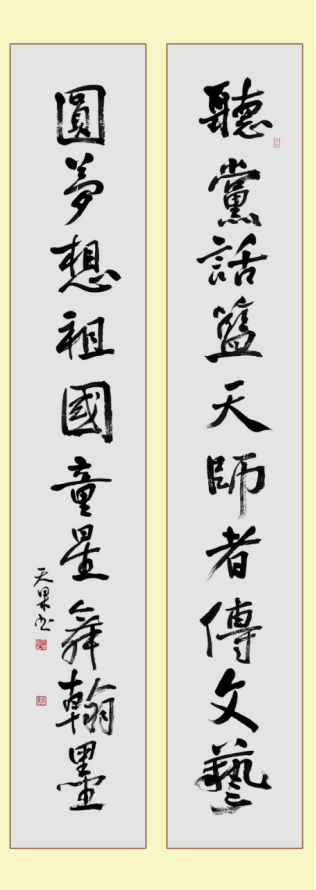 聽黨話籃天師者傳文藝
圓夢想祖國童星舞翰墨
天果书